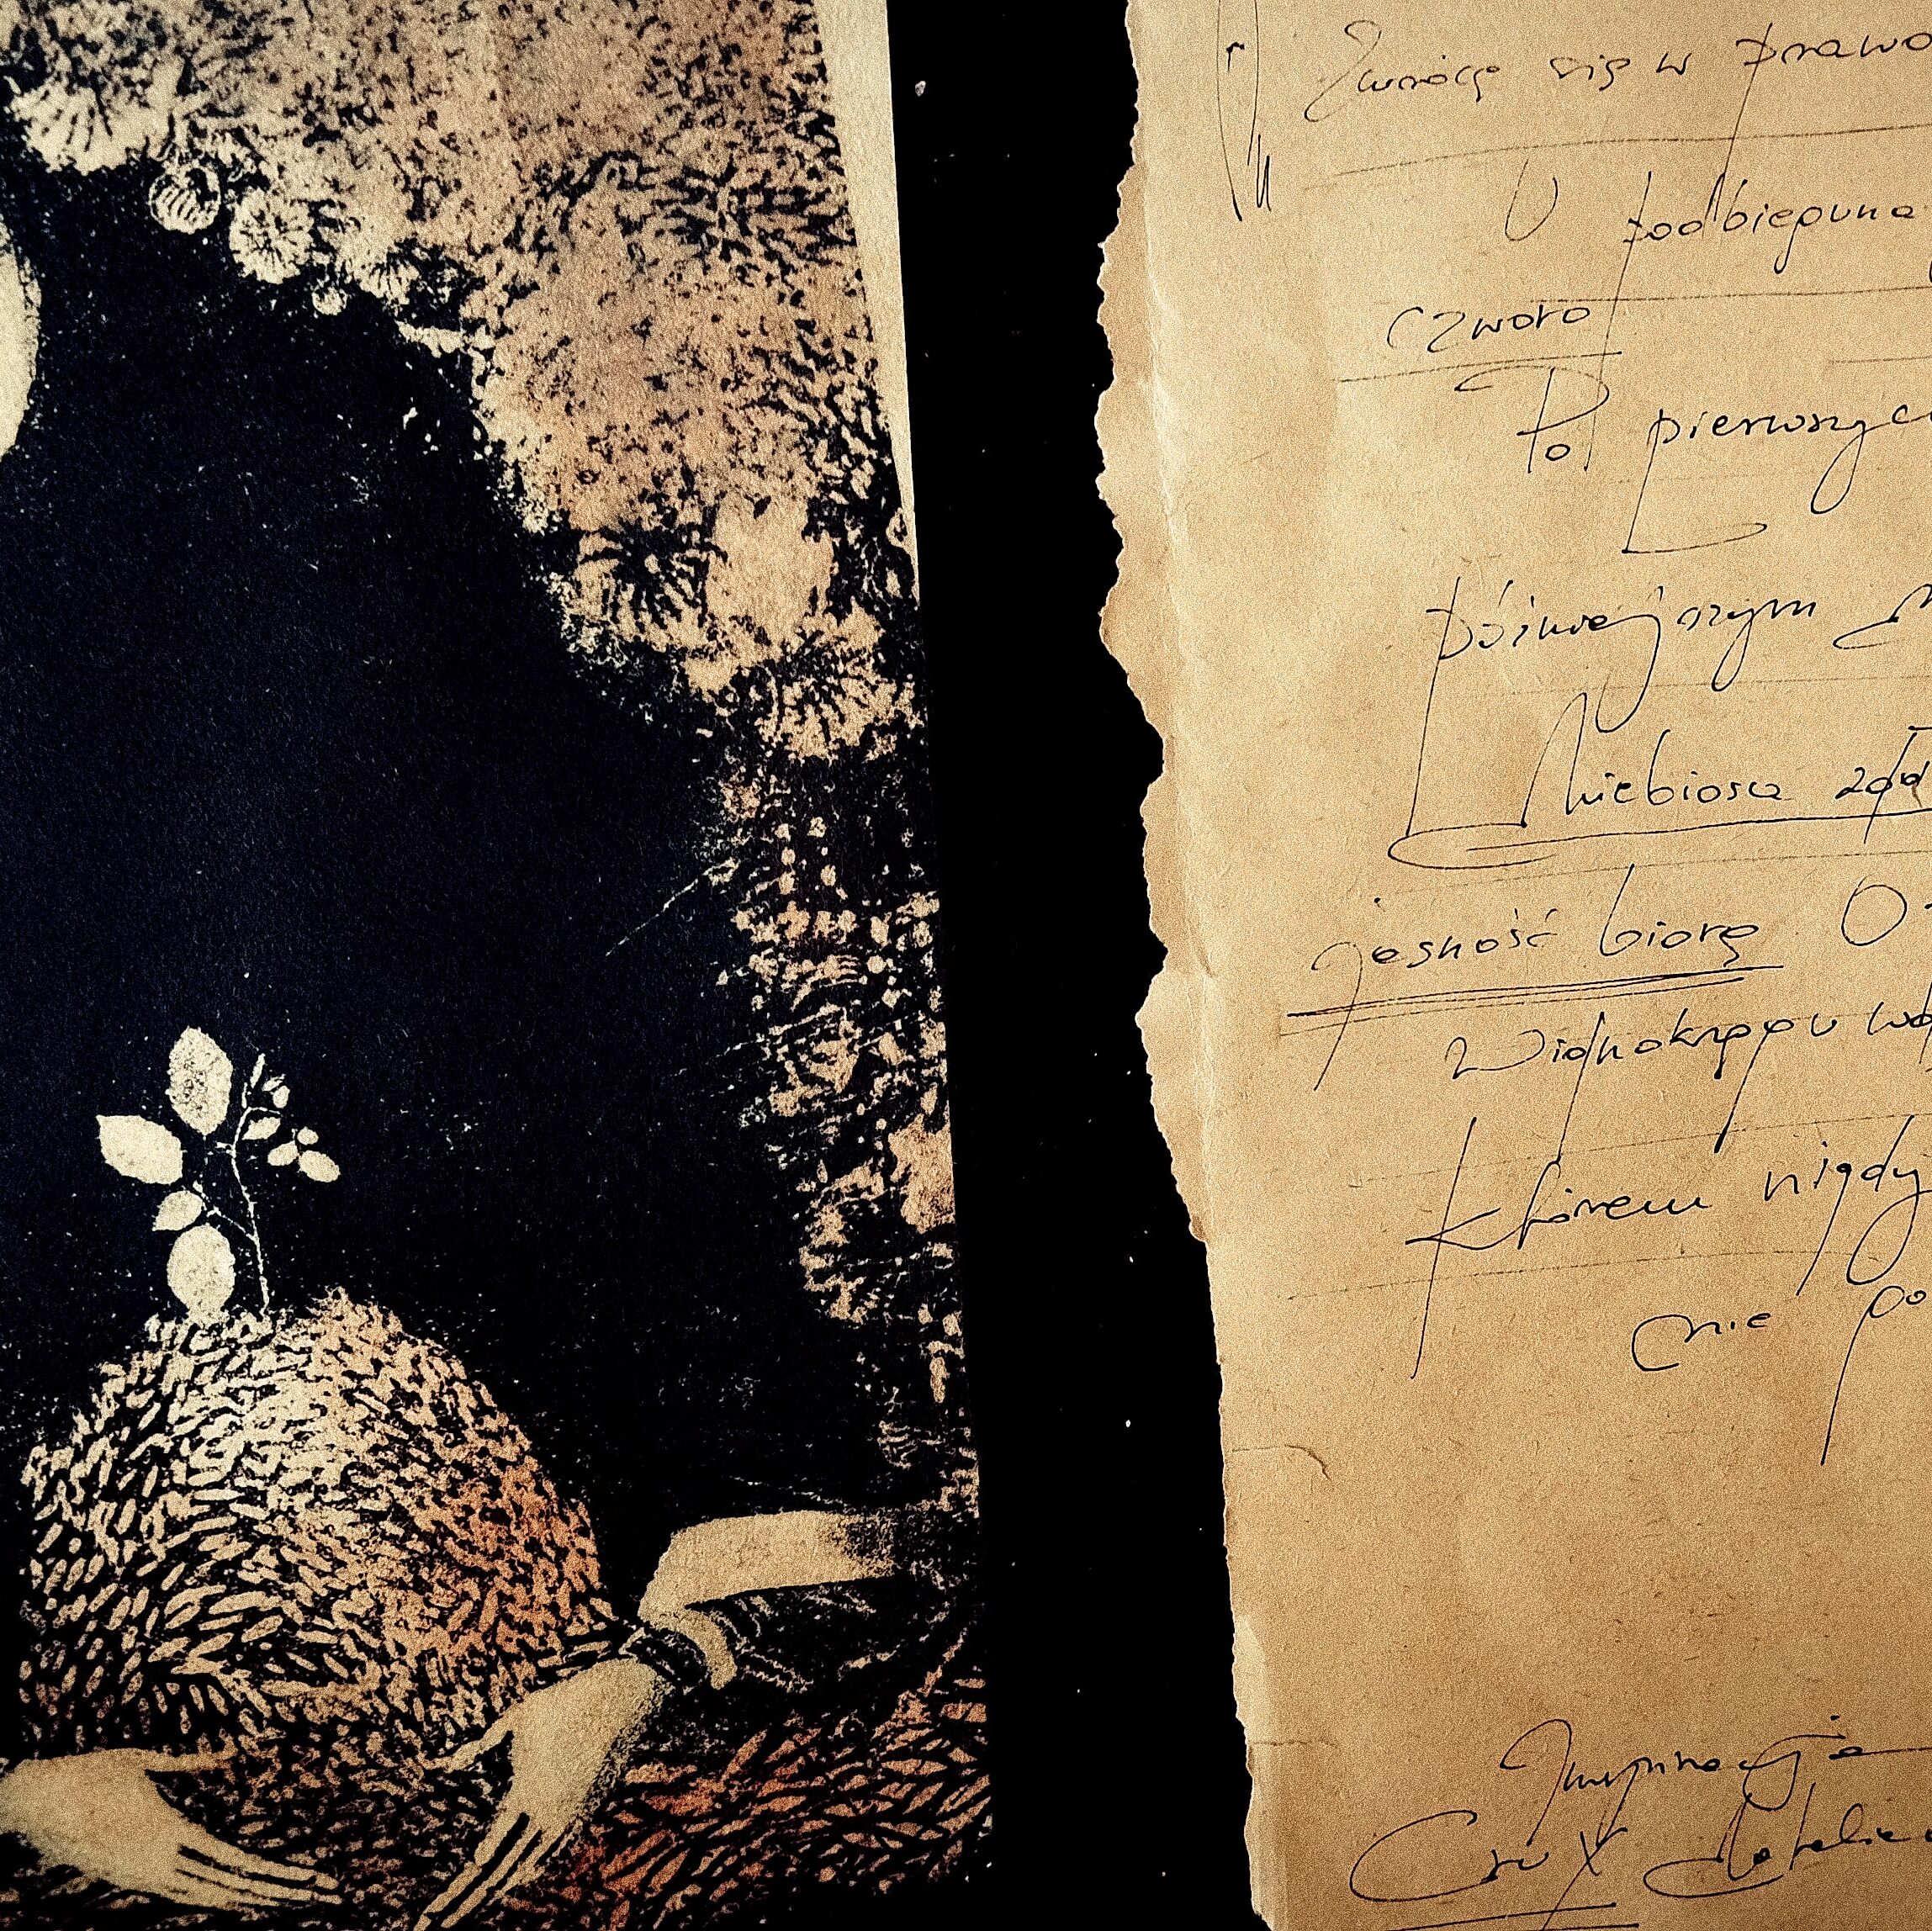 Zwrócę się w prawo
U podbieguna
czworo
Po pierwszyc
późniejszym
Niebiosa
jasność biorę
Widnokręgu
którem nigdy
nie po
Inspiracja
Crux